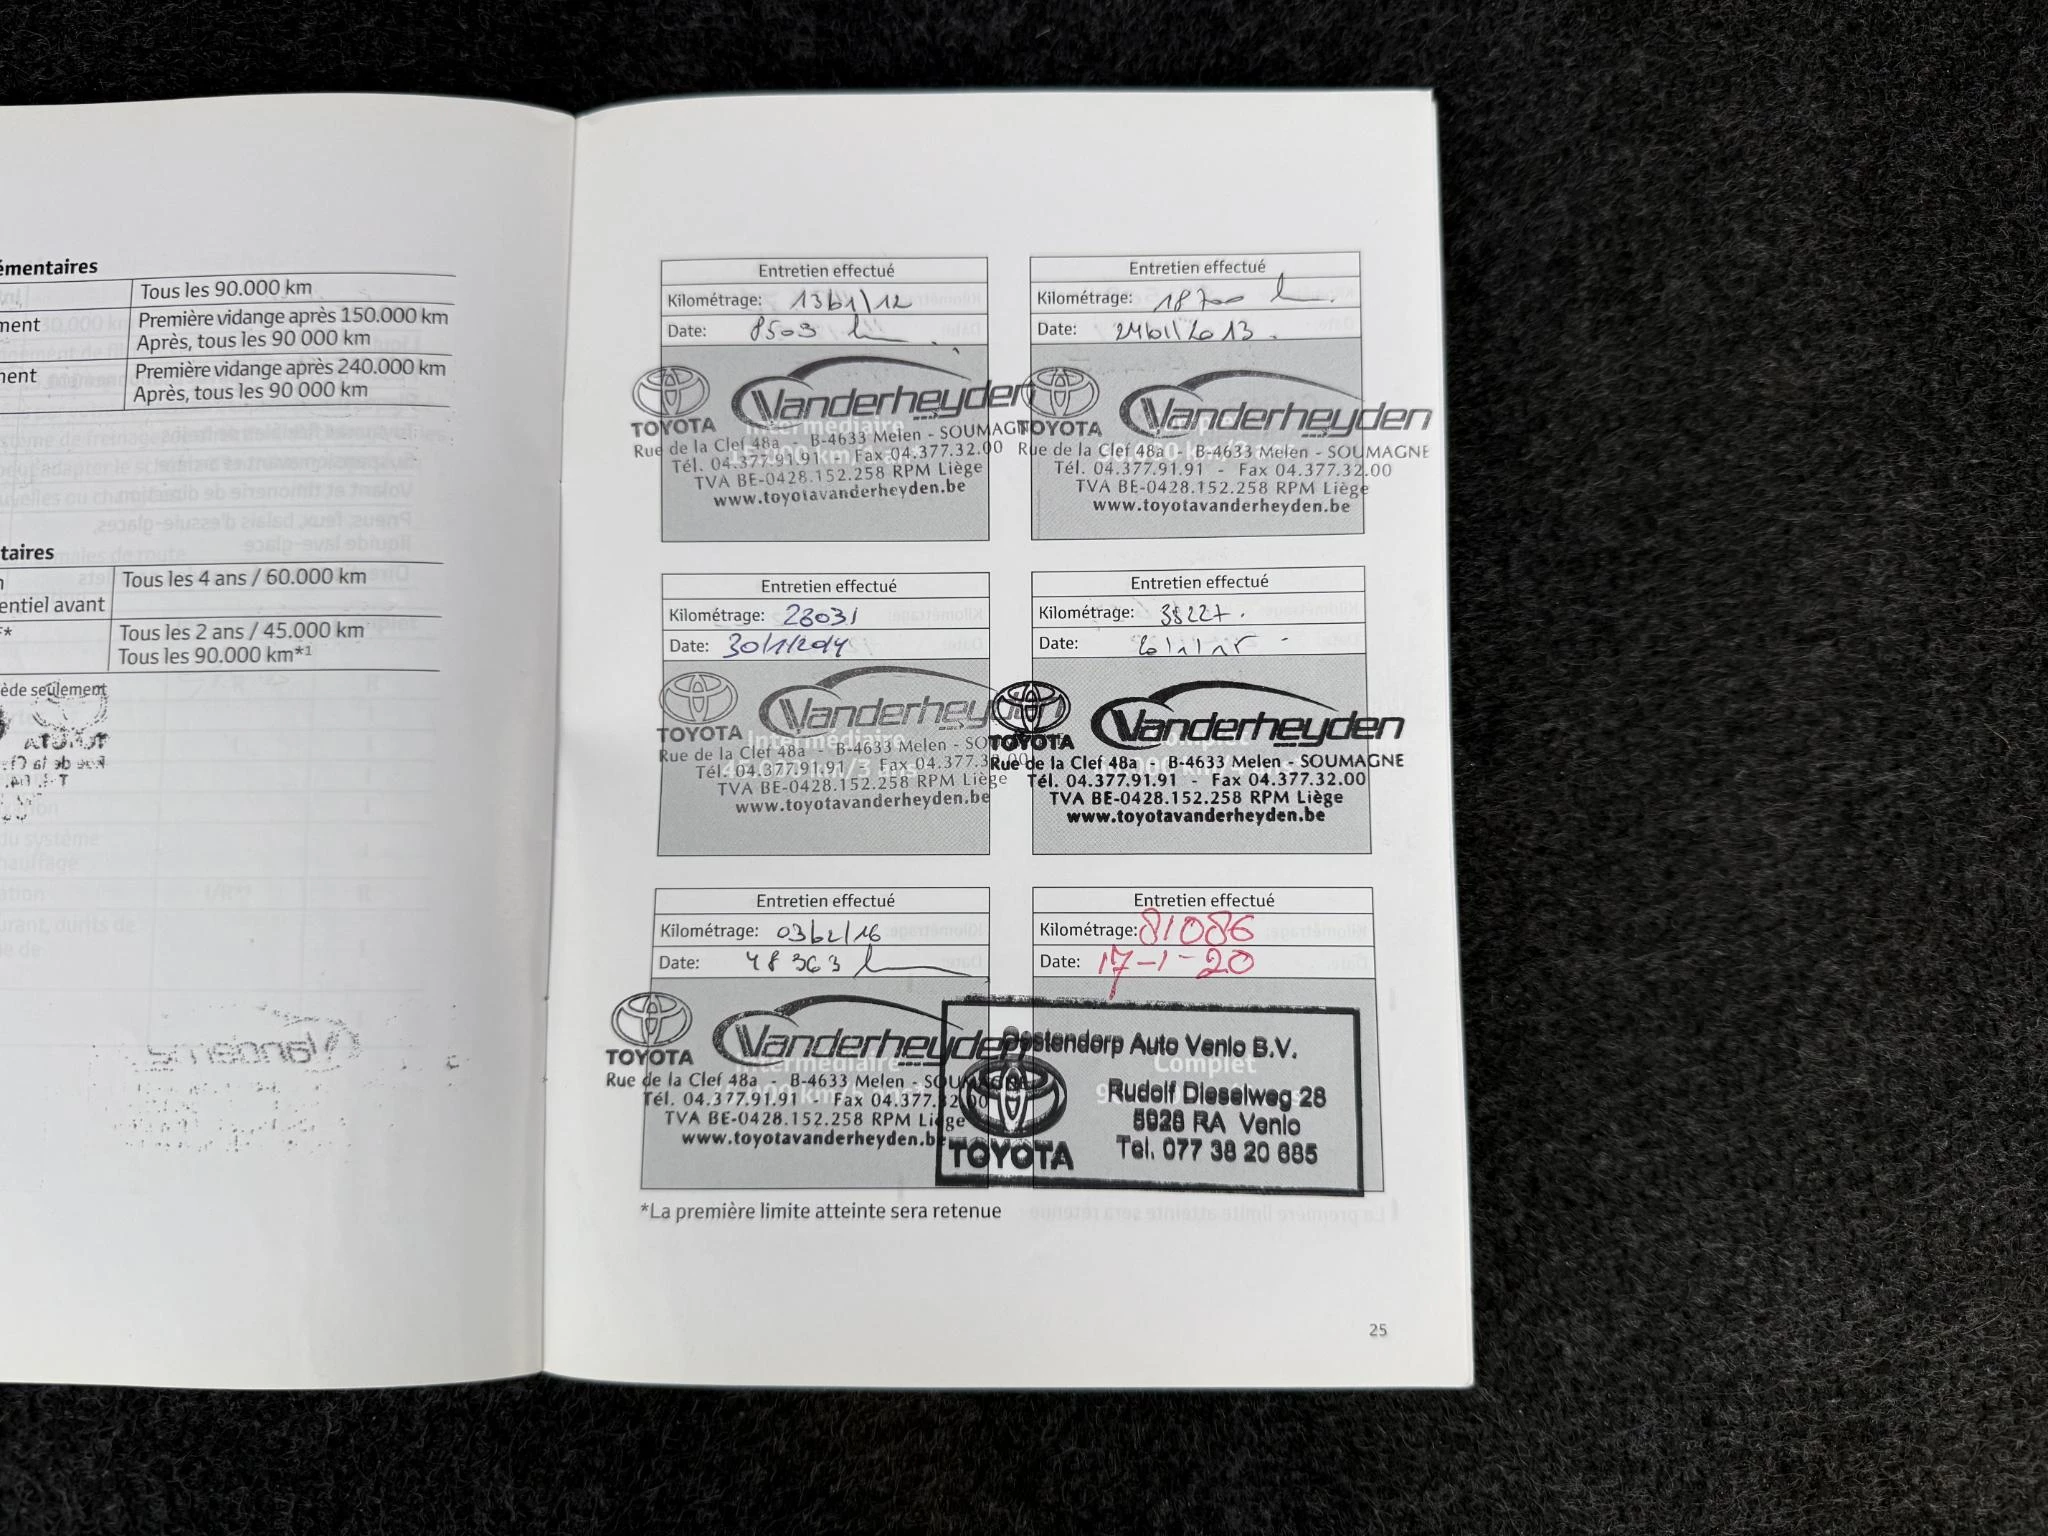 émentaires
Tous les 90.000 km
ment
Première vidange après 150.000 km
Après, tous les 90 000 km
ment
Première vidange après 240.000 km
Après, tous les 90 000 km
taires
n
Tous les 4 ans / 60.000 km
entiel avant
Tous les 2 ans / 45.000 km
Tous les 90.000 km*1
ède seulement
Entretien effectué
Kilométrage: 13/01/12
Date: 8503
TOYOTA
Vanderheyden
Rue de la Clef 48a - B-4633 Melen - SOUMAGN
Tél. 04.377.91.91 Fax 04.377.32.00
TVA BE-0428.152.258 RPM Liège
www.toyotavanderheyden.be
Entretien effectué
Kilométrage: 18700
Date: 24/01/2013.
TOYOTA
Vanderheyden
Rue de la Clef 48a B-4633 Melen - SOUMAGNE
Tél. 04.377.91.91 - Fax 04.377.32.00
TVA BE-0428.152.258 RPM Liège
www.toyotavanderheyden.be
Entretien effectué
Kilométrage: 28031
Date: 30/1/2014
TOYOTA
Vanderheyden
Intermédiaire
Rue de la Clef 48a - B-4633 Melen - SO
Tél. 04.377.91.91 Fax 04.377.3
TVA BE-0428.152.258 RPM Liège
www.toyotavanderheyden.be
Entretien effectué
Kilométrage: 38227.
Date:
TOYOTA
Vanderheyden
Complet
Rue de la Clef 48a - B-4633 Melen - SOUMAGNE
Tél. 04.377.91.91 - Fax 04.377.32.00
TVA BE-0428.152.258 RPM Liège
www.toyotavanderheyden.be
Entretien effectué
Kilométrage: 03/02/16
Date: 48363
TOYOTA
Vanderheyden
Intermédiaire
Rue de la Clef 48a - B-4633 Melen - SOUMAGN
Tél. 04.377.91.91 - Fax 04.377.32.00
TVA BE-0428.152.258 RPM Liège
www.toyotavanderheyden.be
Entretien effectué
Kilométrage: 81086
Date: 17-1-20
Oostendorp Auto Venlo B.V.
Complet
Rudolf Dieselweg 28
5928 RA Venlo
Tel. 077 38 20 685
TOYOTA
*La première limite atteinte sera retenue
25